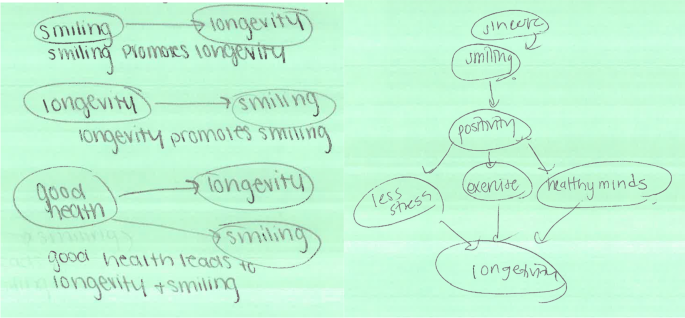 smiling
longevity
smiling promotes longevity
longevity
smiling
longevity promotes smiling
good
health
longevity
smiling
good health leads to
longevity + smiling
sincere
smiling
positivity
less
stress
healthy minds
longevity